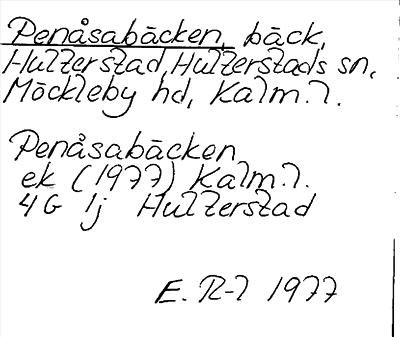 Penåsabäcken, bäck,
Hulterstad, Hulterstads sn,
Möckleby hd, Kalm. l.
Penåsabäcken
ek (1977) Kalm. l.
4G 1j Hulterstad
E. R-l 1977